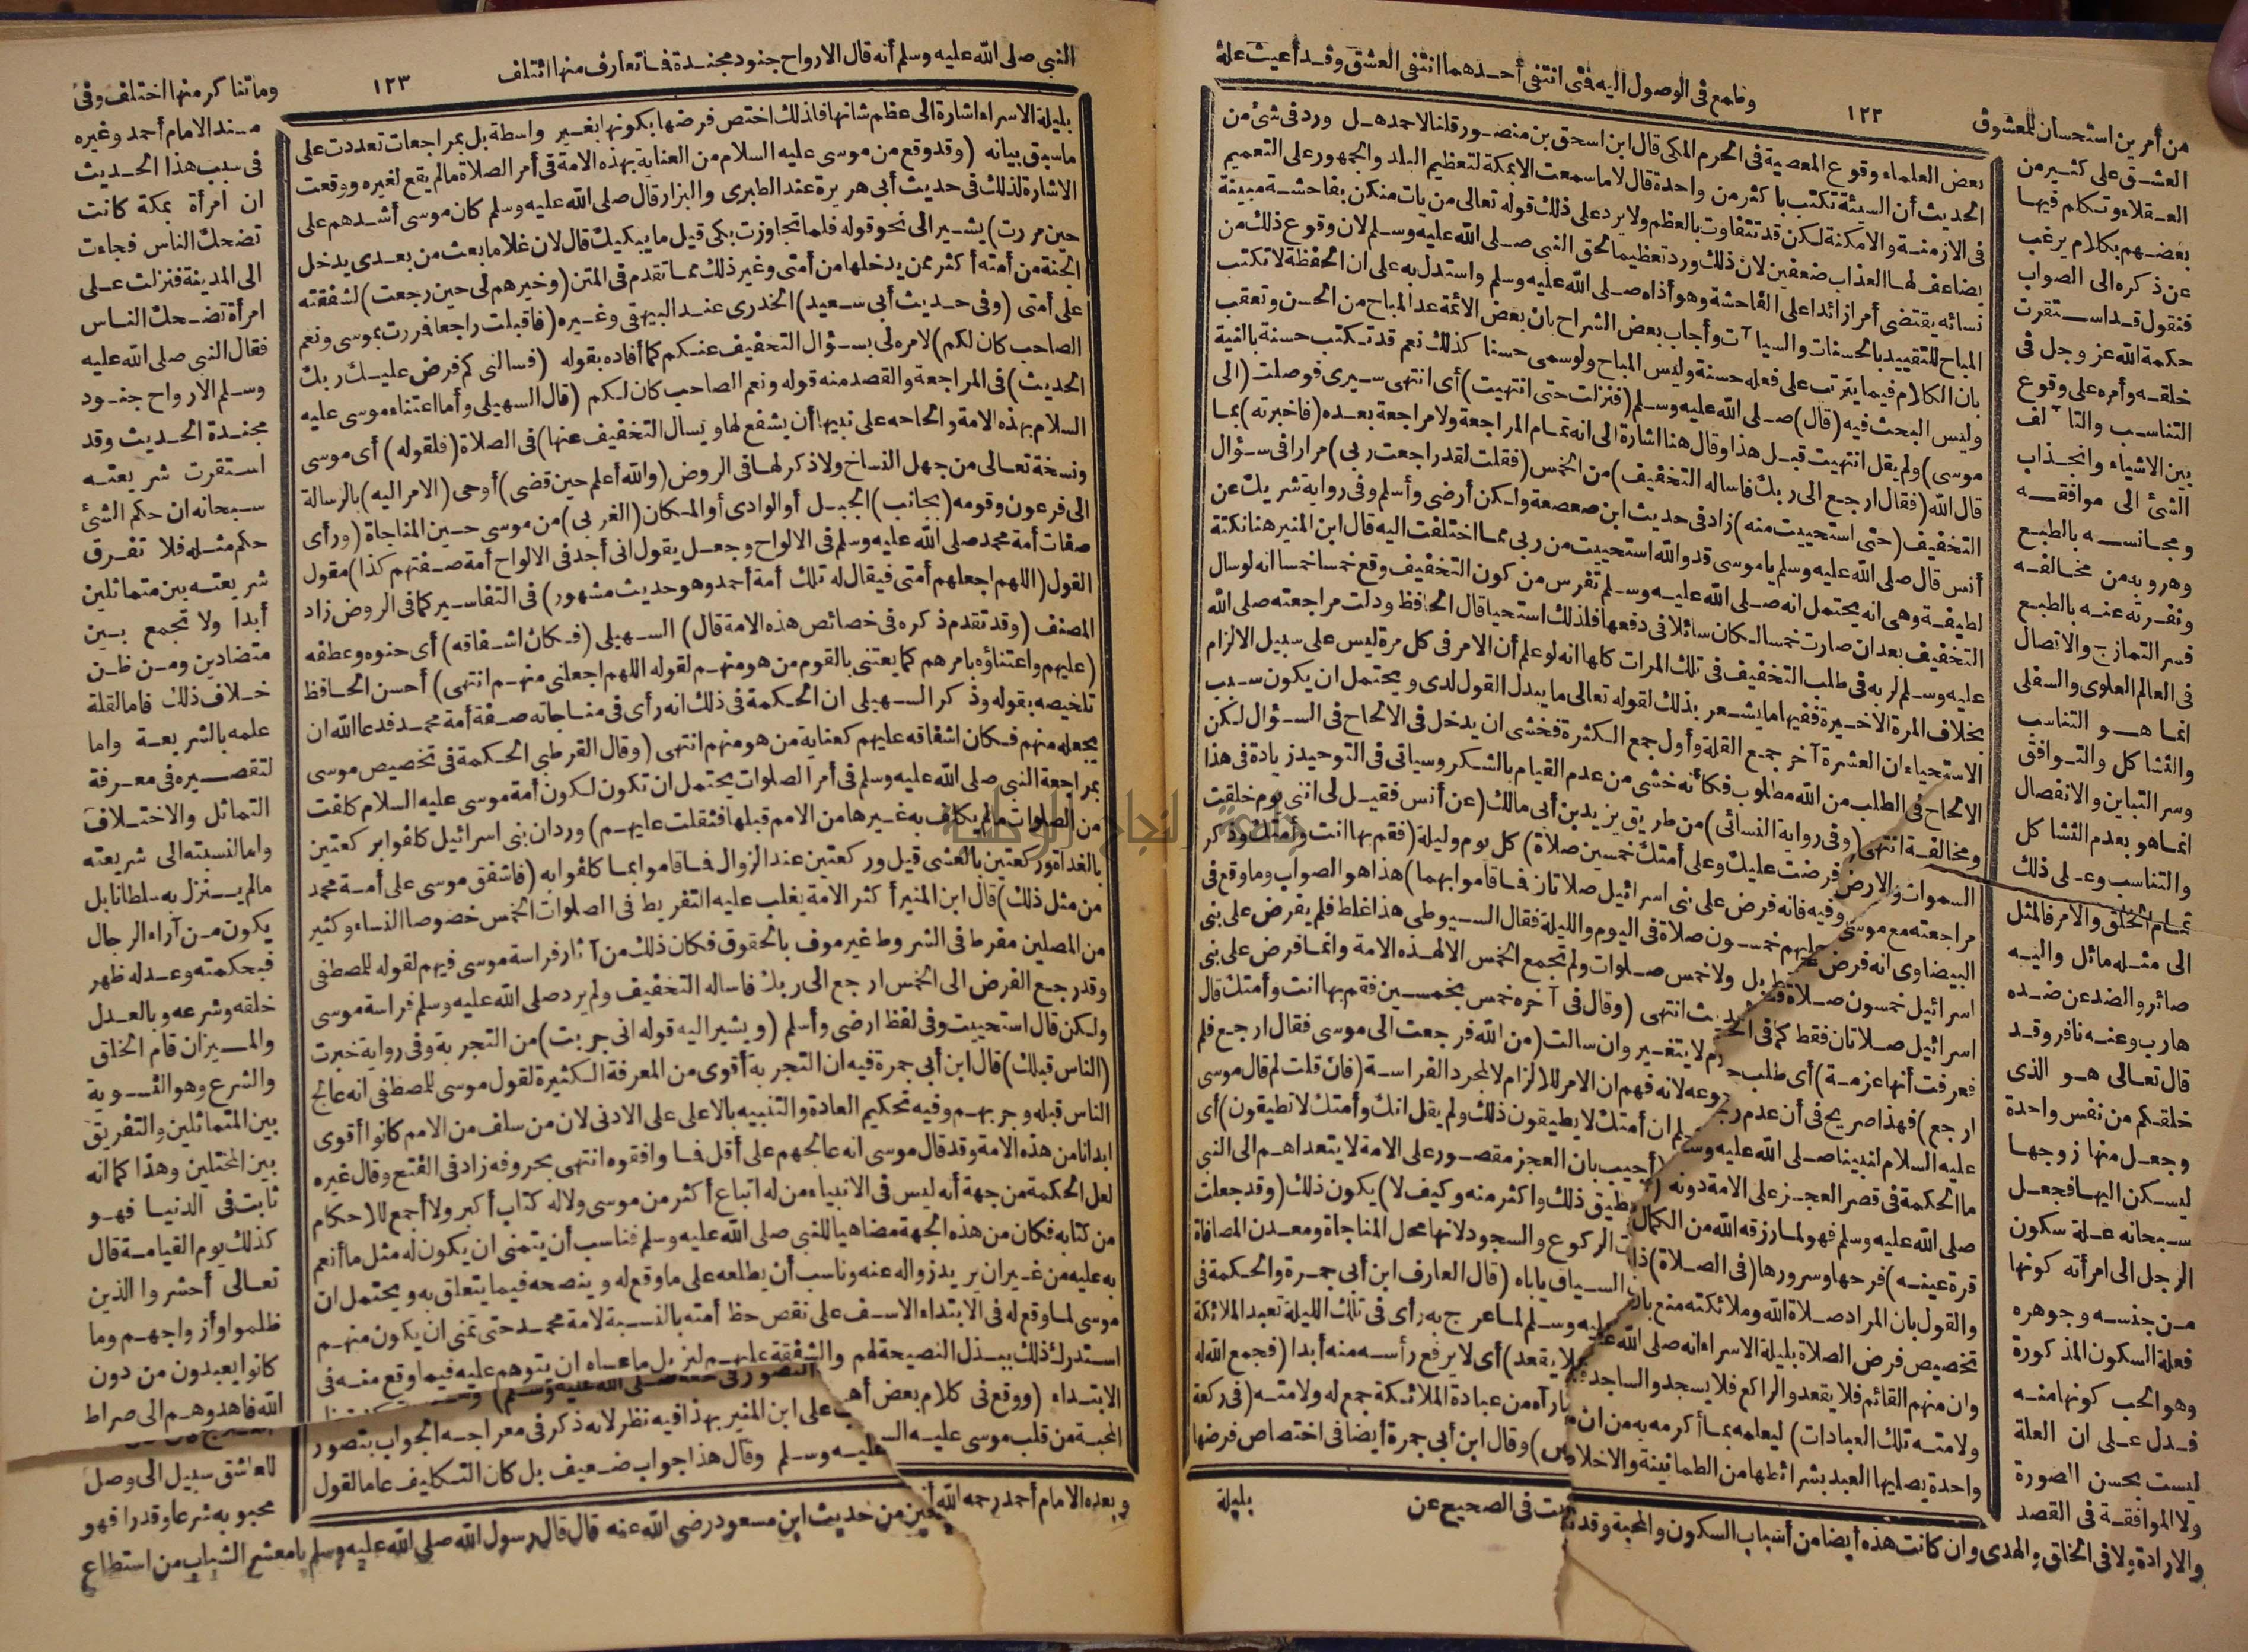 وطمع في الوصول اليه فتى انتفى أحدهما انتفى العشق وقد أعيت علة
١٢٢
من أمرين استحسان للمعشوق
بعض العلماء وقوع المعصية في الحرم المكى قال ابن اسحق بن منصور قلنا لاحمد هل ورد فى شئ من
الحديث أن السيئة تكتب باكثر من واحدة قال لا ما سمعت الا بمكة لتعظيم البلد والجمهور على التعميم
فى الازمنة والامكنة لكن قد تتفاوت بالعظم ولا يرد على ذلك قوله تعالى من يات منكن بفاحشة مبينة
يضاعف لها العذاب ضعفين لان ذلك ورد تعظيما لحق النبى صلى الله عليه وسلم لان وقوع ذلك من
نسائه يقتضى أمرا زائدا على الفاحشة وهو أذاه صلى الله عليه وسلم واستدل به على ان الحفظة لا تكتب
المباح للتقييد بالحسنات والسيا آت وأجاب بعض الشراح بان بعض الائمة عد المباح من الحسن وتعقب
بان الكلام فيما يترتب على فعله حسنة وليس المباح ولو سمى حسنا كذلك نعم قد تكتب حسنة بالنية
وليس البحث فيه (قال) صلى الله عليه وسلم (فنزلت حتى انتهيت) أى انتهى سيرى فوصلت (الى
موسى) ولم يقل انتهيت قبل هذا وقال هنا اشارة الى انه تمام المراجعة ولا مراجعة بعده (فاخبرته) بما
قال الله (فقال ارجع الى ربك فاساله التخفيف) من الخمس (فقلت لقد راجعت ربى) مرارا فى سؤال
التخفيف (حتى استحييت منه) زاد فى حديث ابن صعصعة ولكن أرضى وأسلم وفى رواية شريك عن
أنس قال صلى الله عليه وسلم يا موسى قد والله استحييت من ربى مما اختلفت اليه قال ابن المنير هنا نكتة
لطيفة وهى انه يحتمل انه صلى الله عليه وسلم تفرس من كون التخفيف وقع خمسا خمسا انه لو سال
التخفيف بعد ان صارت خمسا لكان سائلا فى دفعها فلذلك استحيا قال الحافظ ودلت مراجعته صلى الله
عليه وسلم لربه فى طلب التخفيف فى تلك المرات كلها انه لو علم أن الامر فى كل مرة ليس على سبيل الالزام
بخلاف المرة الاخيرة ففيها ما يشعر بذلك لقوله تعالى ما يبدل القول لدى ويحتمل ان يكون سبب
الاستحياء ان العشرة آخر جمع القلة وأول جمع الكثرة فخشى ان يدخل فى الالحاح فى السؤال لكن
الالحاح فى الطلب من الله مطلوب فكأنه خشى من عدم القيام بالشكر وسياتى فى التوحيد زيادة فى هذا
ومخالفة انتهى (وفى رواية النسائى) من طريق يزيد بن أبى مالك (عن أنس فقيل لى انى يوم خلقت
السموات والارض فرضت عليك وعلى أمتك خمسين صلاة) كل يوم وليلة (فقم بها انت وأمتك وذكر
مراجعته مع موسى وفيه فانه فرض على بنى اسرائيل صلاتان فما قاموا بهما) هذا هو الصواب وما وقع فى
البيضاوى انه فرض عليهم خمسون صلاة فى اليوم والليلة فقال السيوطى هذا غلط فلم يفرض على بنى
اسرائيل خمسون صلاة قط بل ولا خمس صلوات ولم تجمع الخمس الا لهذه الامة وانما فرض على بنى
اسرائيل صلاتان فقط كما فى الحديث انتهى (وقال فى آخره خمس بخمسين فقم بها انت وأمتك قال
فعرفت أنها عزمة) أى طلب لا يتغير وان سالت (من الله فرجعت الى موسى فقال ارجع فلم
ارجع) فهذا صريح فى أن عدم رجوعه لانه فهم ان الامر للالزام لا لمجرد الفراسة (فان قلت لم قال موسى
عليه السلام لنبينا صلى الله عليه وسلم ان أمتك لا يطيقون ذلك ولم يقل انك وأمتك لا تطيقون) أى
ما الحكمة فى قصر العجز على الامة دونه (أجيب بان العجز مقصور على الامة لا يتعداهم الى النبى
صلى الله عليه وسلم فهو لما رزقه الله من الكمال يطيق ذلك واكثر منه وكيف لا) يكون ذلك (وقد جعلت
قرة عينه) فرحها وسرورها (فى الصلاة) ذات الركوع والسجود لانها محل المناجاة ومعدن المصافاة
والقول بان المراد صلاة الله وملائكته منع بان السياق ياباه (قال العارف ابن أبى جمرة والحكمة فى
تخصيص فرض الصلاة بليلة الاسراء انه صلى الله عليه وسلم لما عرج به رأى فى تلك الليلة تعبد الملائكة
وان منهم القائم فلا يقعد والراكع فلا يسجد والساجد فلا يقعد) أى لا يرفع رأسه منه أبدا (فجمع الله له
ولامته تلك العبادات) ليعلمه بما أكرمه به من ان ما رآه من عبادة الملائكة جمع له ولامته (فى ركعة
واحدة يصليها العبد بشرائطها من الطمانينة والاخلاص) وقال ابن أبى جمرة أيضا فى اختصاص فرضها
بليلة
العشق على كثير من
العقلاء وتكلم فيها
بعضهم بكلام يرغب
عن ذكره الى الصواب
فنقول قد استقرت
حكمة الله عز وجل فى
خلقه وأمره على وقوع
التناسب والتا لف
بين الاشياء وانجذاب
الشئ الى موافقه
ومجانسه بالطبع
وهروبه من مخالفه
ونفرته عنه بالطبع
فسر التمازج والاتصال
فى العالم العلوى والسفلى
انما هو التناسب
والتشاكل والتوافق
وسر التباين والانفصال
انما هو بعدم التشاكل
والتناسب وعلى ذلك
تمام الخلق والامر فالمثل
الى مثله مائل واليه
صائر والضد عن ضده
هارب وعنه نافر وقد
قال تعالى هو الذى
خلقكم من نفس واحدة
وجعل منها زوجها
ليسكن اليها فجعل
سبحانه علة سكون
الرجل الى امرأته كونها
من جنسه وجوهره
فعلة السكون المذكورة
وهو الحب كونها منه
فدل على ان العلة
ليست بحسن الصورة
ولا الموافقة فى القصد
والارادة ولا فى الخلق والهدى وان كانت هذه أيضا من أسباب السكون والمحبة وقد ثبت فى الصحيح عن
النبى صلى الله عليه وسلم أنه قال الارواح جنود مجندة فما تعارف منها ائتلف
١٢٣
وما تناكر منها اختلف وفى
بليلة الاسراء اشارة الى عظم شانها فلذلك اختص فرضها بكونها بغير واسطة بل بمراجعات تعددت على
ما سبق بيانه (وقد وقع من موسى عليه السلام من العناية بهذه الامة فى أمر الصلاة ما لم يقع لغيره ووقعت
الاشارة لذلك فى حديث أبى هريرة عند الطبرى والبزار قال صلى الله عليه وسلم كان موسى أشدهم على
حين مررت) يشير الى نحو قوله فلما تجاوزت بكى قيل ما يبكيك قال لان غلاما بعث من بعدى يدخل
الجنة من أمته أكثر ممن يدخلها من أمتى وغير ذلك مما تقدم فى المتن (وخيرهم لى حين رجعت) لشفقته
على أمتى (وفى حديث أبى سعيد) الخدرى عند البيهقى وغيره (فاقبلت راجعا فمررت بموسى ونعم
الصاحب كان لكم) لامره لى بسؤال التخفيف عنكم كما أفاده بقوله (فسالنى كم فرض عليك ربك
الحديث) فى المراجعة والقصد منه قوله ونعم الصاحب كان لكم (قال السهيلى وأما اعتناء موسى عليه
السلام بهذه الامة والحاحه على نبيها أن يشفع لها ويسال التخفيف عنها) فى الصلاة (فلقوله) أى موسى
ونسخة تعالى من جهل النساخ ولا ذكر لها فى الروض (والله أعلم حين قضى) أوحى (الامر اليه) بالرسالة
الى فرعون وقومه (بجانب) الجبل أو الوادى أو المكان (الغربى) من موسى حين المناجاة (ورأى
صفات أمة محمد صلى الله عليه وسلم فى الالواح وجعل يقول انى أجد فى الالواح أمة صفتهم كذا) مقول
القول (اللهم اجعلهم أمتى فيقال له تلك أمة أحمد وهو حديث مشهور) فى التفاسير كما فى الروض زاد
المصنف (وقد تقدم ذكره فى خصائص هذه الامة قال) السهيلى (فكان اشفاقه) أى حنوه وعطفه
(عليهم واعتناؤه بامرهم كما يعتنى بالقوم من هو منهم لقوله اللهم اجعلنى منهم انتهى) أحسن الحافظ
تلخيصه بقوله وذكر السهيلى ان الحكمة فى ذلك انه رأى فى مناجاته صفة أمة محمد فدعا الله ان
يجعله منهم فكان اشفاقه عليهم كعناية من هو منهم انتهى (وقال القرطبى الحكمة فى تخصيص موسى
بمراجعة النبى صلى الله عليه وسلم فى أمر الصلوات يحتمل ان تكون لكون أمة موسى عليه السلام كلفت
من الصلوات ما لم يكلف به غيرها من الامم قبلها فثقلت عليهم) ورد ان بنى اسرائيل كلفوا بركعتين
بالغداة وركعتين بالعشى قيل وركعتين عند الزوال فما قاموا بما كلفوا به (فاشفق موسى على أمة محمد
من مثل ذلك) قال ابن المنير أكثر الامة يغلب عليه التفريط فى الصلوات الخمس خصوصا النساء وكثير
من المصلين مفرط فى الشروط غير موف بالحقوق فكان ذلك من آثار فراسة موسى فيهم لقوله للمصطفى
وقد رجع الفرض الى الخمس ارجع الى ربك فاساله التخفيف ولم يرد صلى الله عليه وسلم فراسة موسى
ولكن قال استحييت وفى لفظ ارضى وأسلم (ويشير اليه قوله انى جربت) من التجربة وفى رواية خبرت
(الناس قبلك) قال ابن أبى جمرة فيه ان التجربة أقوى من المعرفة الكثيرة لقول موسى للمصطفى انه عالج
الناس قبله وجربهم وفيه تحكيم العادة والتنبيه بالاعلى على الادنى لان من سلف من الامم كانوا أقوى
ابدانا من هذه الامة وقد قال موسى انه عالجهم على أقل فما وافقوه انتهى بحروفه زاد فى الفتح وقال غيره
لعل الحكمة من جهة أنه ليس فى الانبياء من له اتباع أكثر من موسى ولا له كتاب أكبر ولا أجمع للاحكام
من كتابه فكان من هذه الجهة مضاهيا للنبى صلى الله عليه وسلم فناسب أن يتمنى ان يكون له مثل ما أنعم
به عليه من غير ان يريد زواله عنه وناسب أن يطلعه على ما وقع له وينصحه فيما يتعلق به ويحتمل ان
موسى لما وقع له فى الابتداء الاسف على نقص حظ أمته بالنسبة لامة محمد حتى تمنى ان يكون منهم
استدرك ذلك ببذل النصيحة لهم والشفقة عليهم ليزيل ما عساه ان يتوهم عليه فيما وقع منه فى
الابتداء (ووقع فى كلام بعض أهـ
المحبة من قلب موسى عليه الـ
على ابن المنير بهذا فيه نظر لانه ذكر فى معراجه الجواب بتصور
عليه وسلم وقال هذا جواب ضعيف بل كان التكليف عاما لقول
مسند الامام أحمد وغيره
فى سبب هذا الحديث
ان امرأة بمكة كانت
تضحك الناس فجاءت
الى المدينة فنزلت على
امرأة تضحك الناس
فقال النبى صلى الله عليه
وسلم الارواح جنود
مجندة الحديث وقد
استقرت شريعته
سبحانه ان حكم الشئ
حكم مثله فلا تفرق
شريعته بين متماثلين
أبدا ولا تجمع بين
متضادين ومن ظن
خلاف ذلك فاما لقلة
علمه بالشريعة واما
لتقصيره فى معرفة
التماثل والاختلاف
واما لنسبته الى شريعته
ما لم ينزل به سلطانا بل
يكون من آراء الرجال
فبحكمته وعدله ظهر
خلقه وشرعه وبالعدل
والميزان قام الخلق
والشرع وهو التسوية
بين المتماثلين والتفريق
بين المختلين وهذا كما انه
ثابت فى الدنيا فهو
كذلك يوم القيامة قال
تعالى أحشروا الذين
ظلموا وأزواجهم وما
كانوا يعبدون من دون
الله فاهدوهم الى صراط
للعاشق سبيل الى وصل
محبوبه شرعا وقدرا فهو
وبعده الامام أحمد رحمه الله
من حديث ابن مسعود رضى الله عنه قال قال رسول الله صلى الله عليه وسلم يا معشر الشباب من استطاع